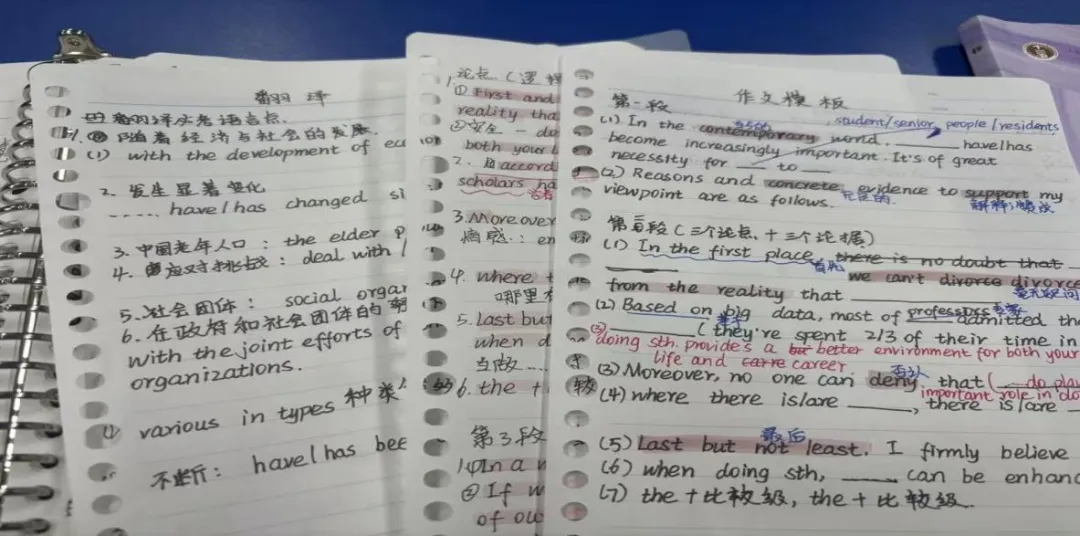 翻译
随着经济与社会的发展.
(1) with the development of
2. 发生显著变化
...... have/has changed
3. 中国老年人口: the elder
4. 应对挑战: deal with
5. 社会团体: social organ
6. 在政府和社会团体的
with the joint efforts of
organizations.
various in types 种类
不断: have/has bee
论点 (逻
① First and
reality tha
②安全 - do
both your l
2. accord
scholars ha
3. Moreover
情感: en
4. where t
哪里有
5. Last but
when d
当做 ....
6. the +
第3段
1. ① In a
② If w
of ou
作文模板
第一段
student/senior people/residents
(1) In the contemporary world. ____ have/has
become increasingly important. It's of great
necessity for ___ to ___
(2) Reasons and concrete evidence to support my
viewpoint are as follows.
第二段 (三个论点、十三个论据)
(1) In the first place, there is no doubt that
首先
we can't divorce divorce
from the reality that ____
(2) Based on big data, most of professors admitted tha
基于 专家
____ (they're spent 2/3 of their time in
doing sth. provides a better environment for both your
life and career.
否认
(3) Moreover, no one can deny that (___ do play
important role in do
(4) where there is/are ____, there is/are
最后
(5) Last but not least, I firmly believe
(6) when doing sth, ____ can be enhanc
(7) the + 比较级, the + 比较级.